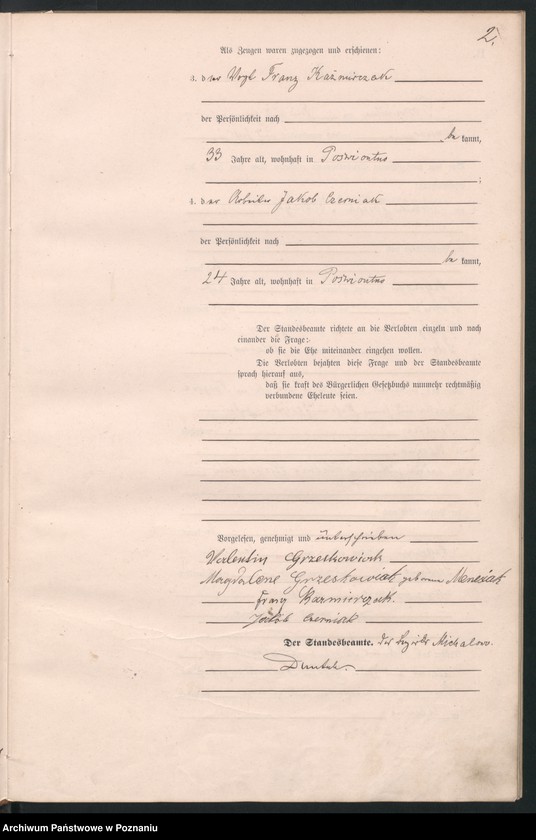 2.
Als Zeugen waren zugezogen und erschienen:
3. der Vogt Franz Kaźmierczak
der Persönlichkeit nach
bekannt,
33 Jahre alt, wohnhaft in Poswiontno
;
4. der Arbeiter Jakob Czerniak
der Persönlichkeit nach
bekannt,
24 Jahre alt, wohnhaft in Poswiontno
Der Standesbeamte richtete an die Verlobten einzeln und nach
einander die Frage:
ob sie die Ehe miteinander eingehen wollen.
Die Verlobten bejahten diese Frage und der Standesbeamte
sprach hierauf aus,
daß sie kraft des Bürgerlichen Gesetzbuchs nunmehr rechtmäßig
verbundene Eheleute seien.
Vorgelesen, genehmigt und unterschrieben
Valentin Grzeskowiak
Magdalene Grzeskowiak geborene
Franz Kazmierczak.
Jakob Czerniak
Der Standesbeamte. des Bezirks Michalowo.
Archiwum Państwowe w Poznaniu